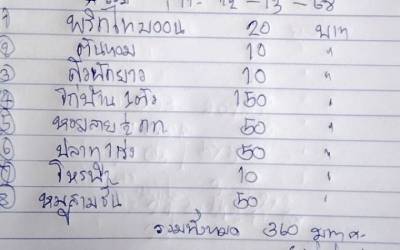 1 พริกไทยออน 20 บาท
② ต้นหอม 10 "
③ ถั่วฝักยาว 10 "
④ ไก่บ้าน 1 ตัว 150 "
⑤ หอมลาย ½ กก. 50 "
⑥ ปลาทู 1 เข่ง 50 "
⑦ โหรพา 10 "
⑧ หมูสามชั้น 50 "
รวมทั้งหมด 360 บาท